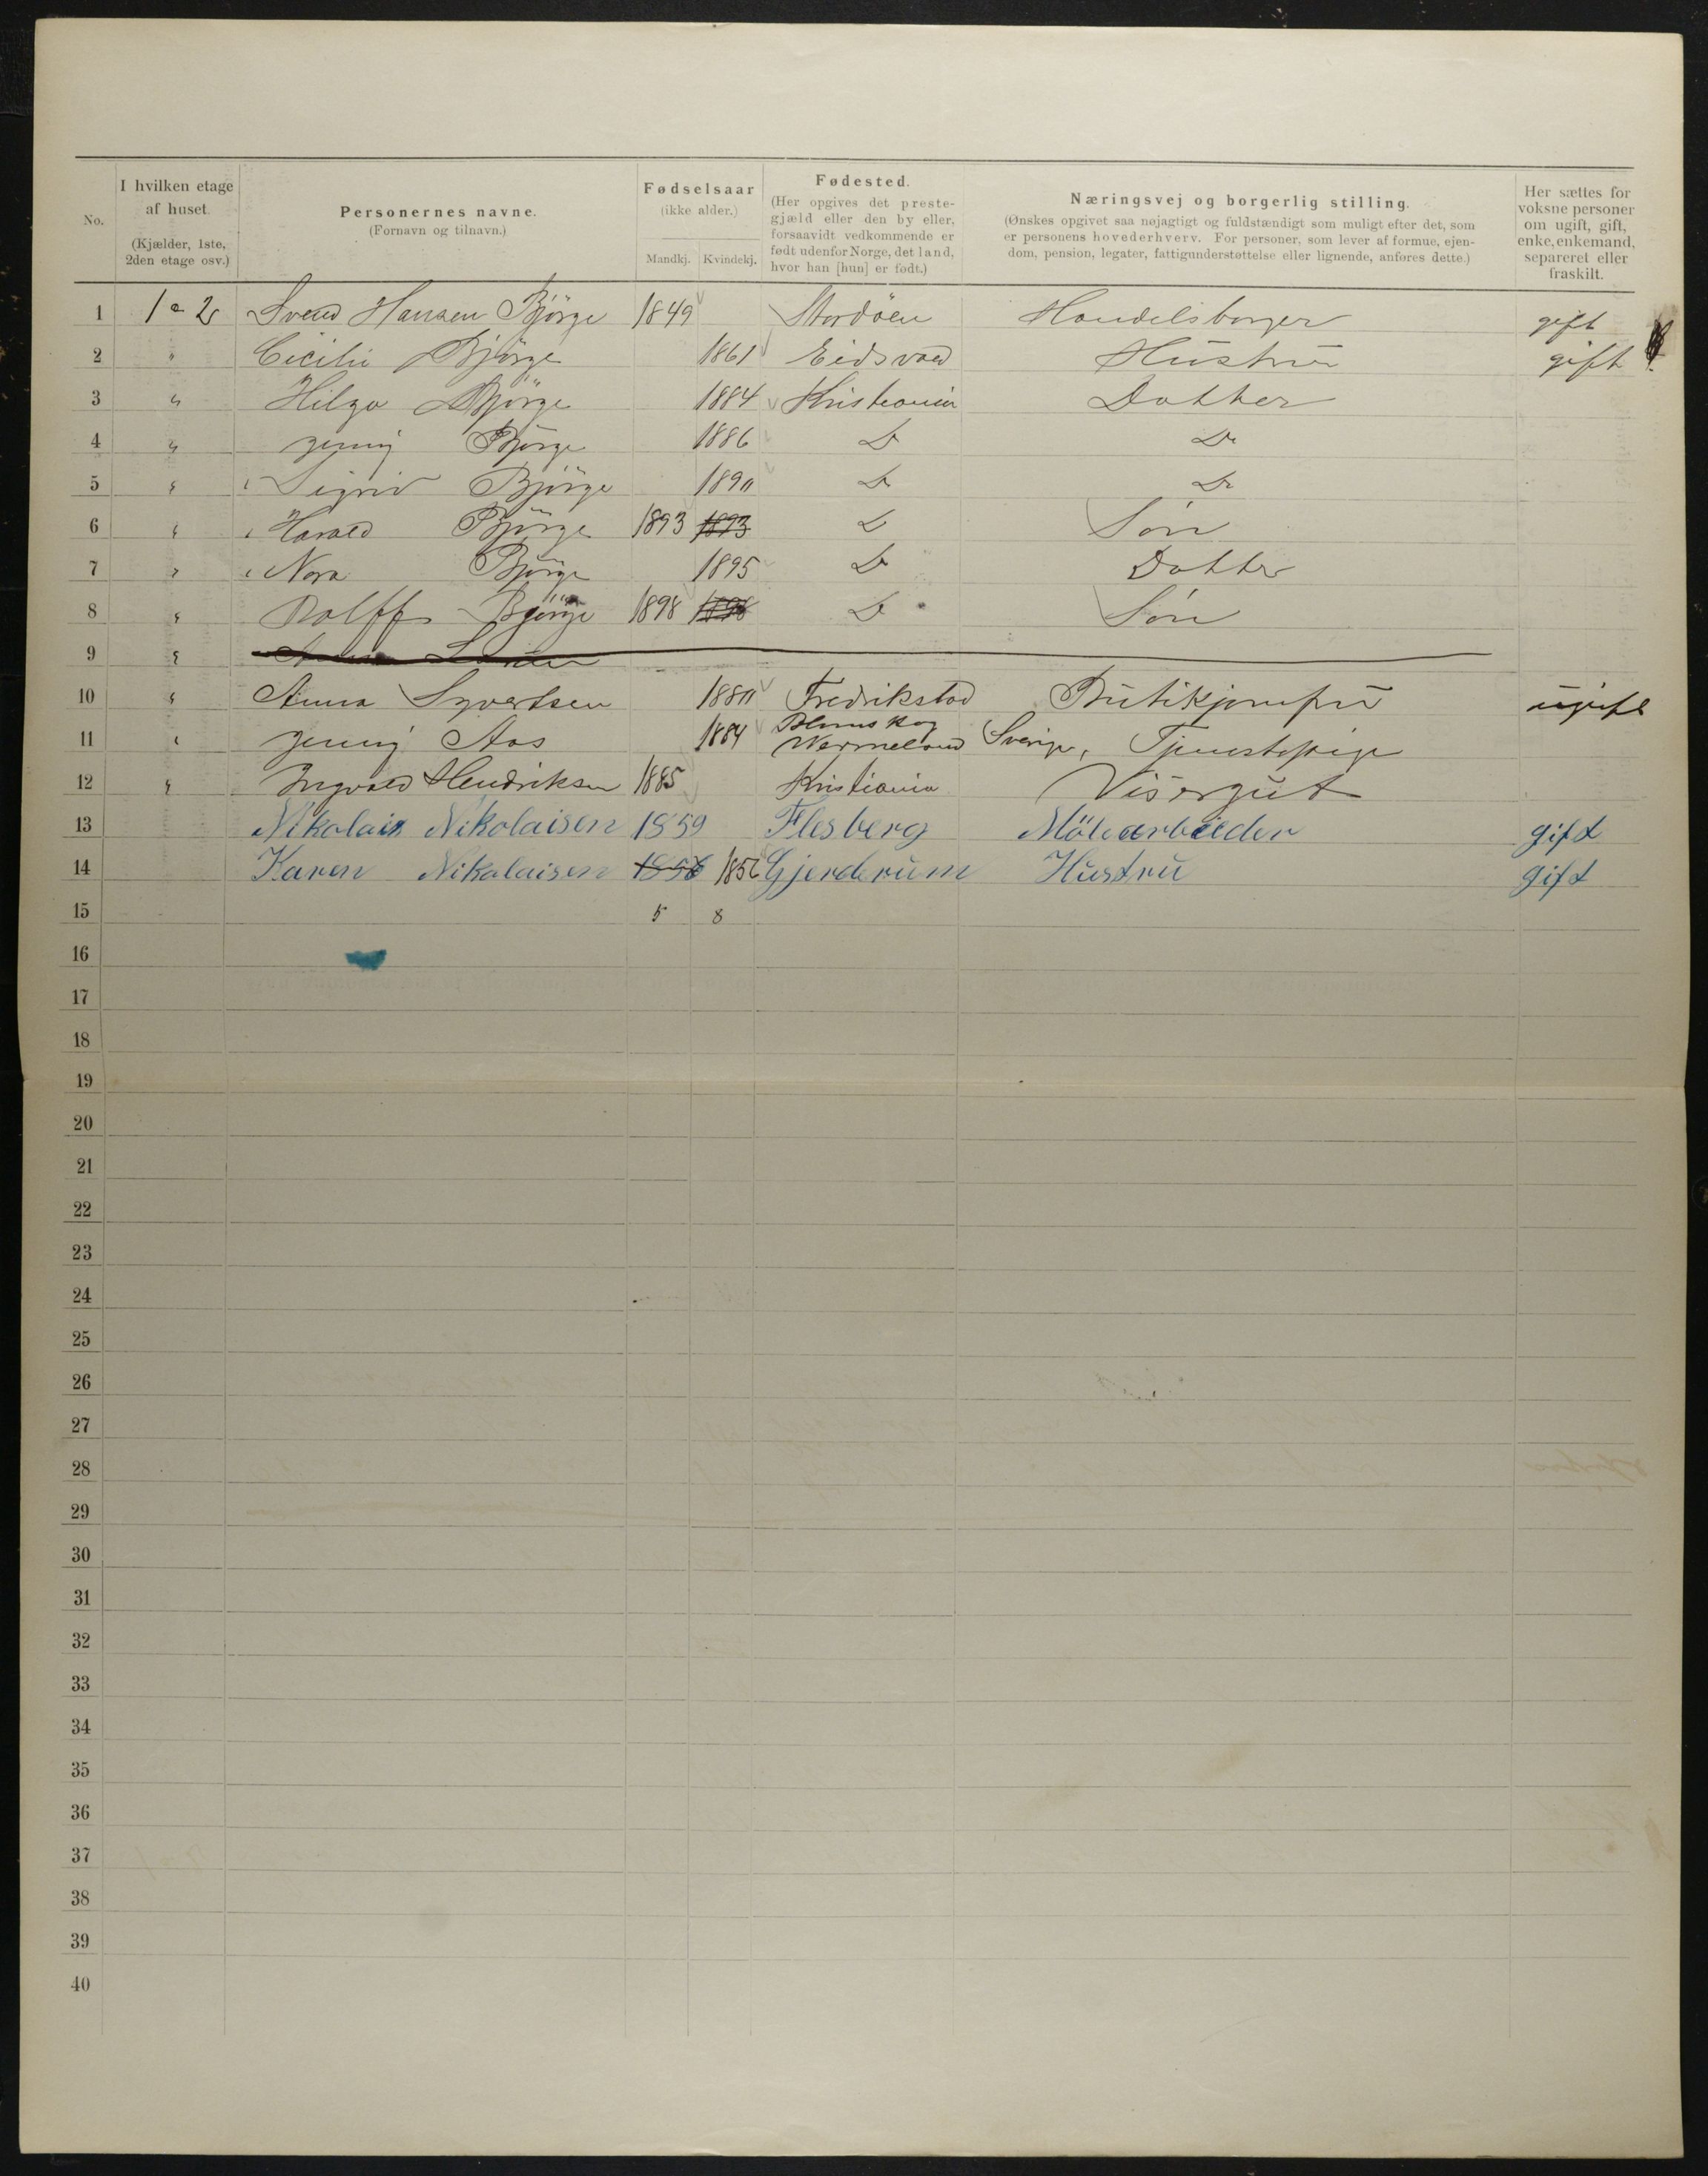 No. | I hvilken etage af huset. (Kjælder, 1ste, 2den etage osv.) | Personernes navne. (Fornavn og tilnavn.) | Fødselsaar (ikke alder.) Mandkj. Kvindekj. | Fødested. (Her opgives det prestegjæld eller den by eller, forsaavidt vedkommende er født udenfor Norge, det land, hvor han [hun] er født.) | Næringsvej og borgerlig stilling. (Ønskes opgivet saa nøjagtigt og fuldstændigt som muligt efter det, som er personens hovederhverv. For personer, som lever af formue, ejendom, pension, legater, fattigunderstøttelse eller lignende, anføres dette.) | Her sættes for voksne personer om ugift, gift, enke, enkemand, separeret eller fraskilt.
1 1 a 2 Svend Hansen Bjørge 1849 Stordøen Handelsborger gift
2 " Cicilie Bjørge 1861 Eidsvold Hustru gift
3 " Hilga Bjørge 1884 Kristiania Datter
4 " Jenny Bjørge 1886 Do Do
5 " Sigrid Bjørge 1890 Do Do
6 " Harald Bjørge 1893 1893 Do Søn
7 " Nora Bjørge 1895 Do Datter
8 " Rolff Bjørge 1898 1898 Do Søn
9 "
10 " Anna Syvertsen 1880 Fredrikstad Butikjomfru ugift
11 " Jenny Aas 1884 Blomskog Wermeland Sverige, Tjenestepige
12 " Ingvald Hendriksen 1885 Kristiania Visergut
13 Nikolai Nikolaisen 1859 Flesberg Mölearbeider gift
14 Karen Nikolaisen 1856 1856 Gjerderum Hustru gift
15 5 8
16
17
18
19
20
21
22
23
24
25
26
27
28
29
30
31
32
33
34
35
36
37
38
39
40